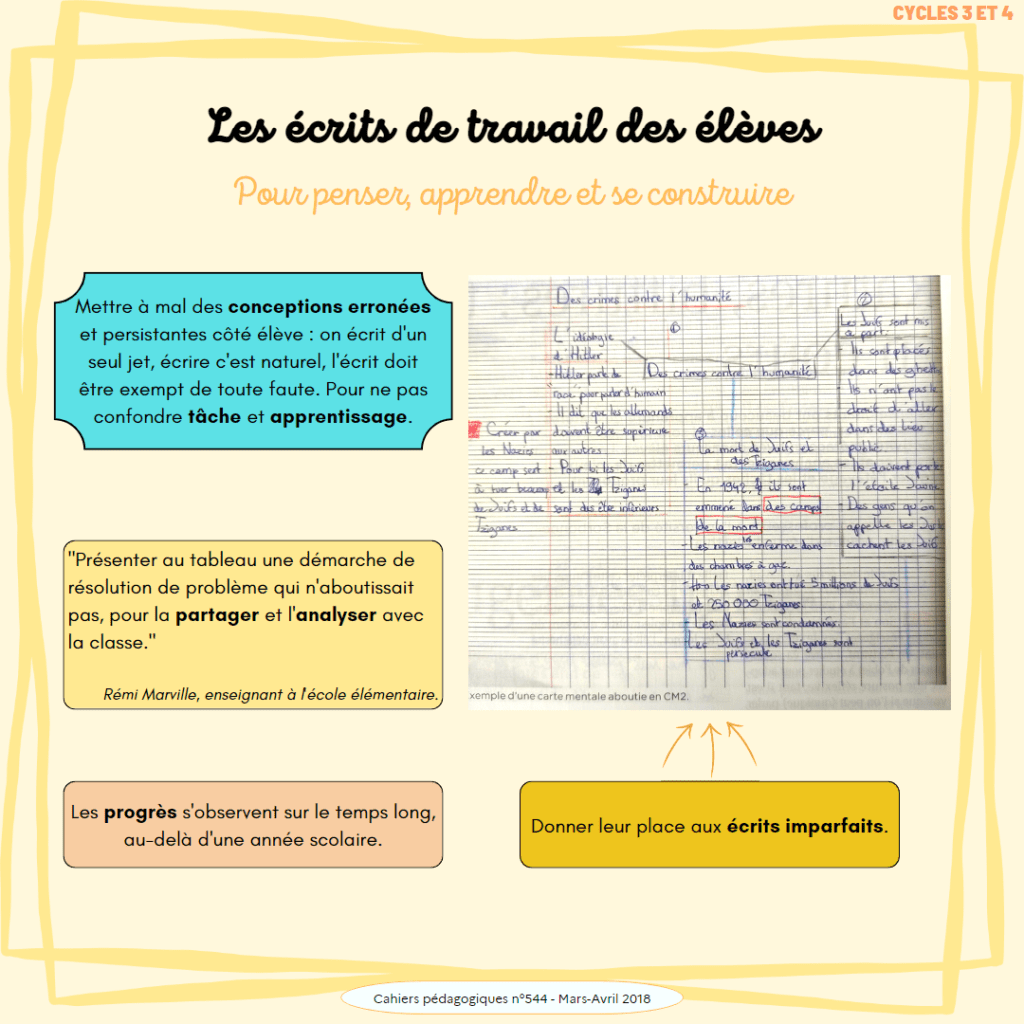 CYCLES 3 ET 4
Les écrits de travail des élèves
Pour penser, apprendre et se construire
Mettre à mal des conceptions erronées
et persistantes côté élève : on écrit d'un
seul jet, écrire c'est naturel, l'écrit doit
être exempt de toute faute. Pour ne pas
confondre tâche et apprentissage.
"Présenter au tableau une démarche de
résolution de problème qui n'aboutissait
pas, pour la partager et l'analyser avec
la classe."
Rémi Marville, enseignant à l'école élémentaire.
Les progrès s'observent sur le temps long,
au-delà d'une année scolaire.
Des crimes contre l'humanité
①
L'idéologie
d'Hitler
- Hitler parle de
race pour parler d'humain
- Il dit que les allemands
doivent être supérieure
aux autres
- Pour lui les Juifs
et les Tziganes
sont des être inférieurs
Des crimes contre l'humanité
②
Les Juifs sont mis
a part.
- Ils sont placés
dans des ghetto
- Ils n'ont pas le
droit d'aller
dans des lieu
public.
- Ils doivent porter
l'étoile Jaune
- Des gens qu'on
appelle les Juste
cachent les Juifs
Créer par
les Nazies
ce camp sert
à tuer beaucoup
de Juifs et de
Tziganes
③
La mort de Juifs et
des Tziganes
- En 1942, ils sont
emmené dans des camps
de la mort
- Les nazies les enferme dans
des chambres à gaz.
Les nazies ont tué 5 millions de Juifs
et 250 000 Tziganes
- Les Nazies sont condamnés.
- Les Juifs et les Tziganes sont
persécuté
xemple d'une carte mentale aboutie en CM2.
Donner leur place aux écrits imparfaits.
Cahiers pédagogiques n°544 - Mars-Avril 2018